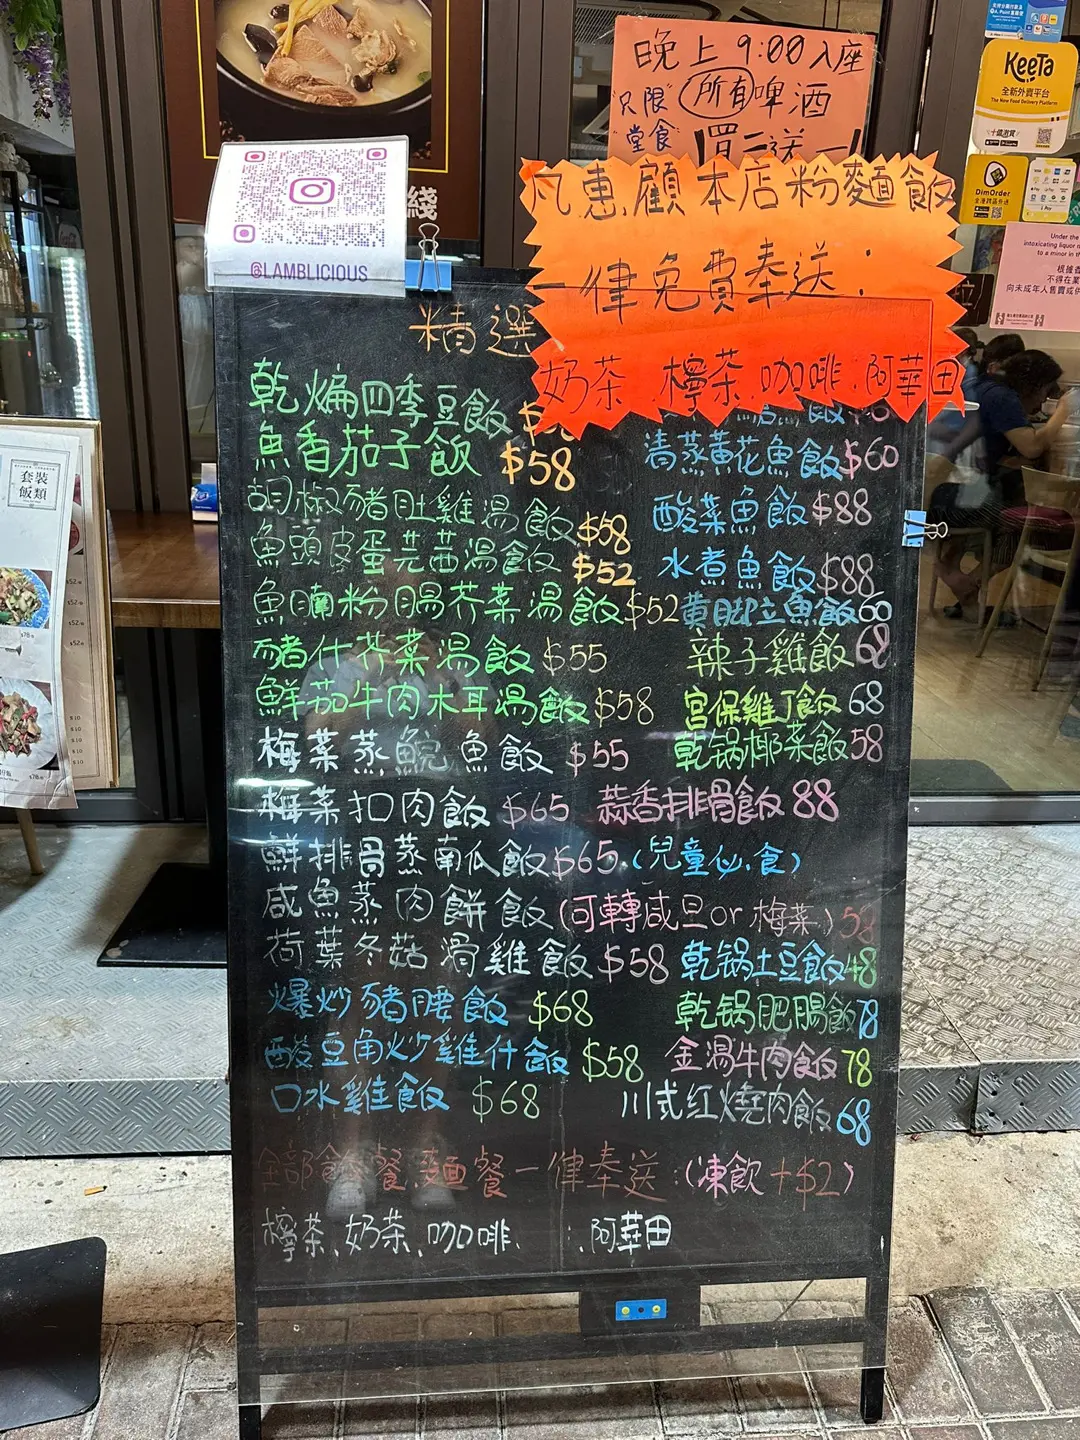 晚上 9:00 入座
只限 所有啤酒
堂食 買二送一
KeeTa
全新外賣平台
The New Food Delivery Platform
DimOrder
凡惠顧本店粉麵飯
一律免費奉送：
奶茶、檸茶、咖啡、阿華田
@LAMBLICIOUS
Under the
intoxicating liquor
to a minor in th
套裝
飯類
精選
乾煸四季豆飯
魚香茄子飯 $58
胡椒豬肚雞湯飯 $58
魚頭皮蛋芫茜湯飯 $52
魚腩粉腸芥菜湯飯 $52
豬什芥菜湯飯 $55
鮮茄牛肉木耳湯飯 $58
梅菜蒸鯇魚飯 $55
梅菜扣肉飯 $65
鮮排骨蒸南瓜飯 $65 (兒童必食)
咸魚蒸肉餅飯 (可轉咸旦or梅菜) 58
荷葉冬菇滑雞飯 $58
爆炒豬腰飯 $68
酸豆角炒雞什飯 $58
口水雞飯 $68
清蒸黃花魚飯 $60
酸菜魚飯 $88
水煮魚飯 $88
黄脚立魚飯 60
辣子雞飯 68
宮保雞丁飯 68
乾锅椰菜飯 58
蒜香排骨飯 88
乾锅土豆飯 48
乾锅肥腸飯 78
金湯牛肉飯 78
川式红燒肉飯 68
全部飯餐、麵餐一律奉送：(凍飲+$2)
檸茶、奶茶、咖啡、阿華田